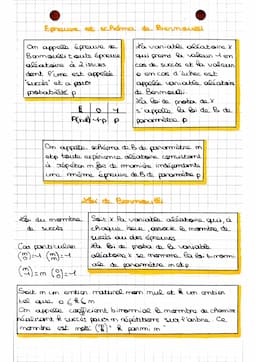 Epreuve et schéma de Bernoulli
On appelle épreuve de
Bernoulli toute épreuve
aléatoire à 2 issues
dont l'une est appelée
"succès" et a pour
probabilité p
k 0 1
P(X=k) 1-p p
La variable aléatoire X
qui prend la valeur 1 en
cas de succès et la valeur
0 en cas d'échec est
appelée variable aléatoire
de Bernoulli.
La loi de proba de X
s'appelle la loi de B de
paramètre p
On appelle schéma de B de paramètre n
et p toute expérience aléatoire consistant
à répéter n fois de manière indépendante
une même épreuve de B de paramètre p
Loi de Bernoulli
Loi du nombre
de succès
Cas particuliers
(n 0) = 1 (n n) = 1
(n 1) = n (0 0) = 1
Soit X la variable aléatoire qui, à
chaque issue, associe le nombre de
succès au des épreuves
La loi de proba de la variable
aléatoire X se nomme la loi binomiale
de paramètre n et p
Soit n un entier naturel non nul et k un entier
tel que 0 ≤ k ≤ n
On appelle coefficient binomial le nombre de chemins
réalisant k succès pour n répétitions sur l'arbre. Ce
nombre est noté (n k) "k parmi n"